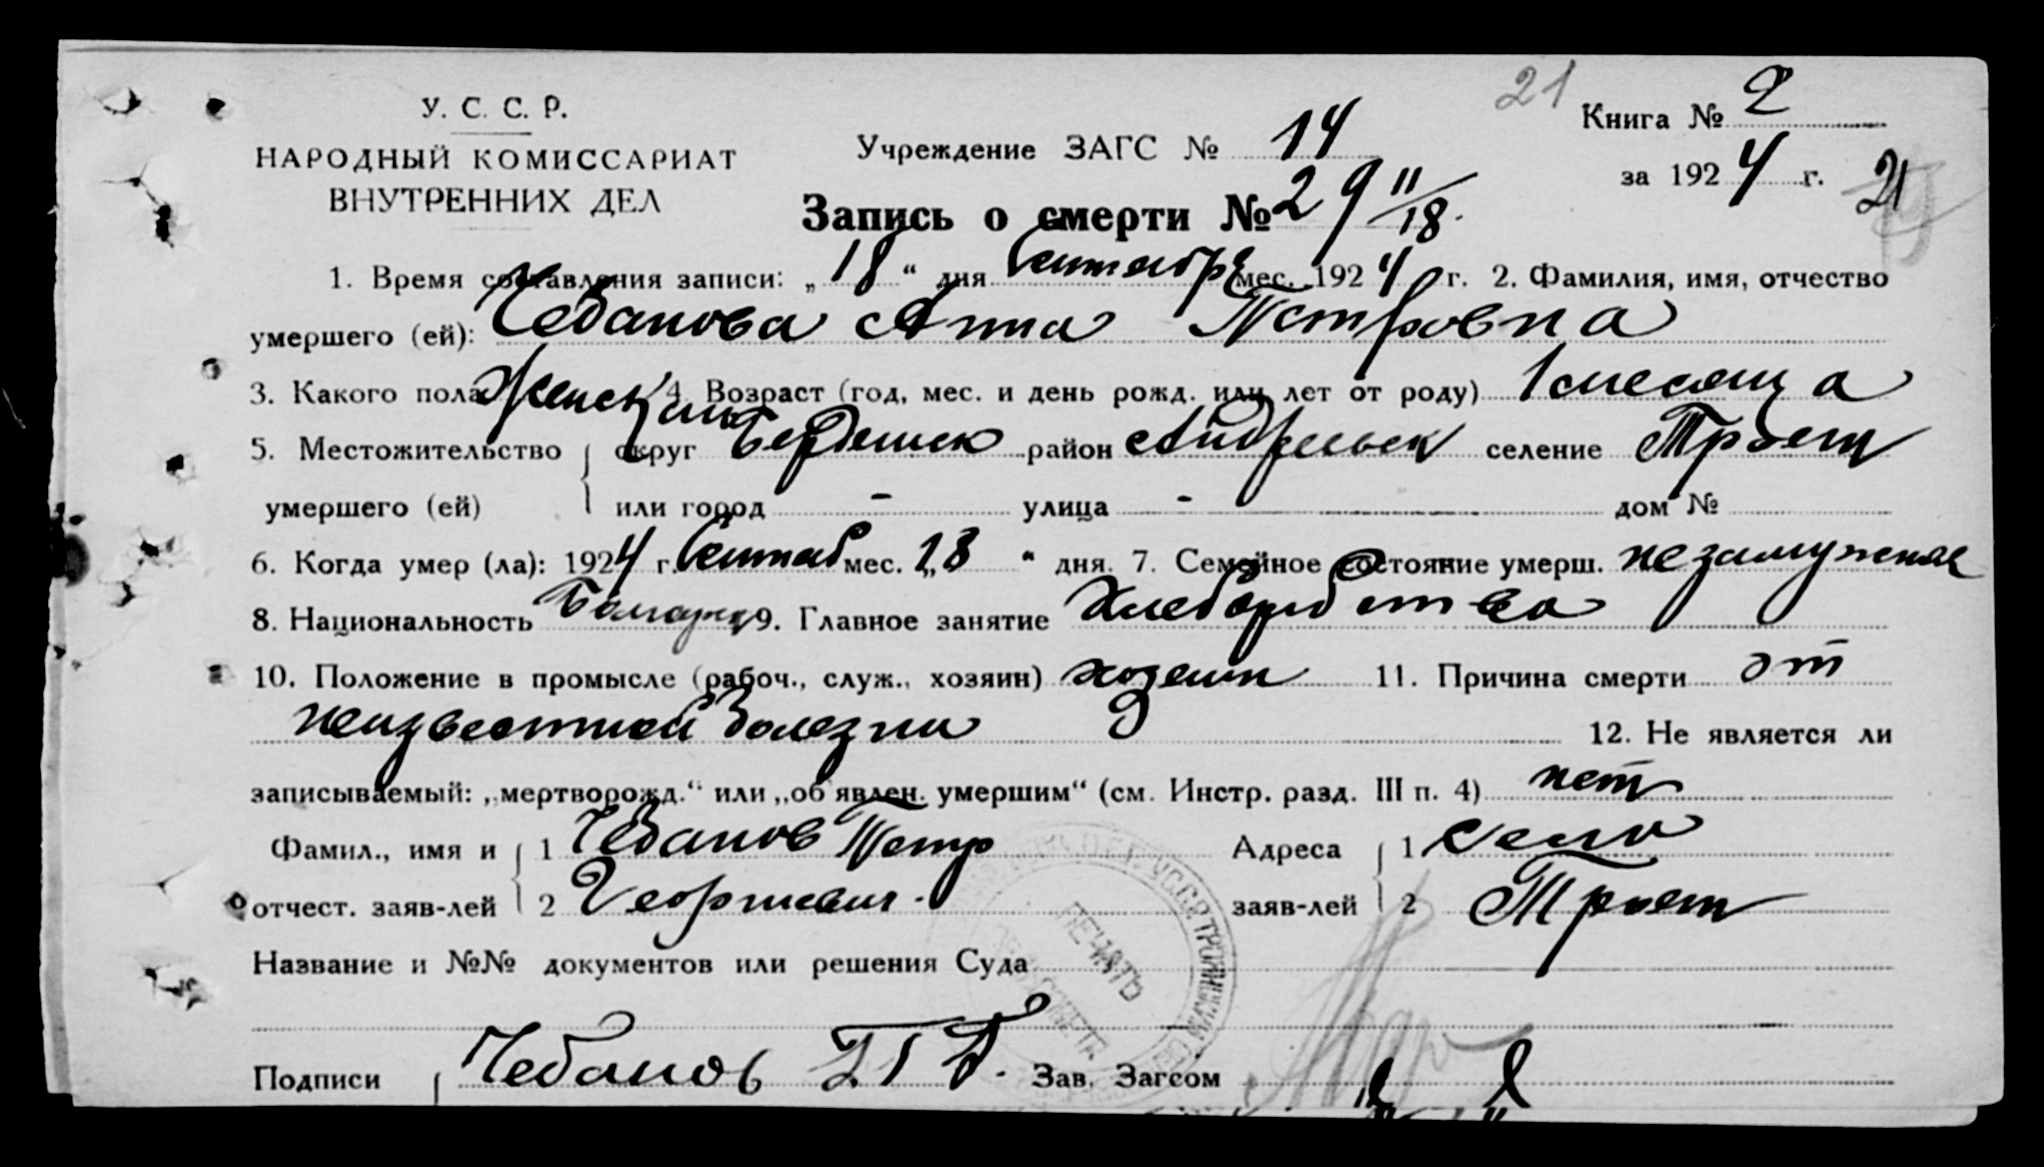 21
Книга № 2
У. С. С. Р.
НАРОДНЫЙ КОМИССАРИАТ
ВНУТРЕННИХ ДЕЛ
Учреждение ЗАГС № 14
за 1924 г. 21
Запись о смерти № 29 11/18.
1. Время составления записи: „18“ дня Сентября мес. 1924 г. 2. Фамилия, имя, отчество
умершего (ей): Чебанова Анна Петровна
3. Какого пола Женский 4. Возраст (год, мес. и день рожд. или лет от роду) 1 месяца
5. Местожительство округ район селение Троян
умершего (ей) или город - улица - дом №
6. Когда умер (ла): 1924 г. Сентяб мес. „13“ дня. 7. Семейное состояние умерш. незамужняя
8. Национальность 9. Главное занятие Хлеборобство
10. Положение в промысле (рабоч., служ., хозяин) хозяин 11. Причина смерти от
неизвестной болезни 12. Не является ли
записываемый: „мертворожд.“ или „об'явлен. умершим“ (см. Инстр. разд. III п. 4) нет
Фамил., имя и 1 Чебанов Петр Адреса 1 село
отчест. заяв-лей 2 Георгиевич. заяв-лей 2 Троян
Название и №№ документов или решения Суда
ПЕЧАТЬ
Подписи Чебанов П Г. Зав. Загсом